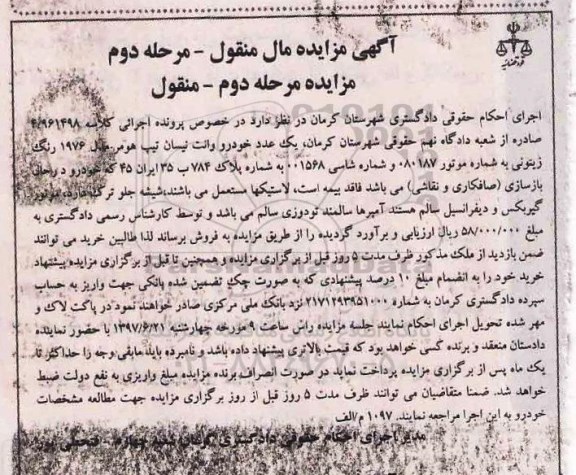 آگهی مزایده مال منقول - مرحله دوم
مزایده مرحله دوم - منقول
اجرای احکام حقوقی دادگستری شهرستان کرمان در نظر دارد در خصوص پرونده اجرائی کلاسه ۴/۹۶۱۴۹۸
صادره از شعبه دادگاه نهم حقوقی شهرستان کرمان، یک عدد خودرو وانت نیسان تیپ هومر مدل ۱۹۷۶ رنگ
زیتونی به شماره موتور ۰۸۰۱۸۷ و شماره شاسی ۰۰۱۵۶۸ به شماره پلاک ۷۸۴ ب ۳۵ ایران ۴۵ که خودرو در حال
بازسازی (صافکاری و نقاشی) می باشد فاقد بیمه است، لاستیکها مستعمل می باشند،شیشه جلو ترک دارد، موتور
گیربکس و دیفرانسیل سالم هستند آمپرها سالمند تودوزی سالم می باشد و توسط کارشناس رسمی دادگستری به
مبلغ ۵۸/۰۰۰/۰۰۰ ریال ارزیابی و برآورد گردیده را از طریق مزایده به فروش برساند لذا طالبین خرید می توانند
ضمن بازدید از ملک مذکور ظرف مدت ۵ روز قبل از برگزاری مزایده و همچنین تا قبل از برگزاری مزایده پیشنهاد
خرید خود را به انضمام مبلغ ۱۰ درصد پیشنهادی که به صورت چک تضمین شده بانکی جهت واریز به حساب
سپرده دادگستری کرمان به شماره ۲۱۷۱۲۹۳۹۵۱۰۰۰ نزد بانک ملی مرکزی صادر خواهند نمود در پاکت لاک و
مهر شده تحویل اجرای احکام نمایند جلسه مزایده راس ساعت ۹ مورخه چهارشنبه ۱۳۹۷/۶/۲۱ با حضور نماینده
دادستان منعقد و برنده کسی خواهد بود که قیمت بالاتری پیشنهاد داده باشد و نامبرده باید مابقی وجه را حداکثر تا
یک ماه پس از برگزاری مزایده پرداخت نماید در صورت انصراف برنده مزایده مبلغ واریزی به نفع دولت ضبط
خواهد شد. ضمنا متقاضیان می توانند ظرف مدت ۵ روز قبل از روز برگزاری مزایده جهت مطالعه مشخصات
خودرو به این اجرا مراجعه نمایند. ۱۰۹۷ م/الف
مدیر اجرای احکام حقوقی دادگستری کرمان شعبه چهارم -